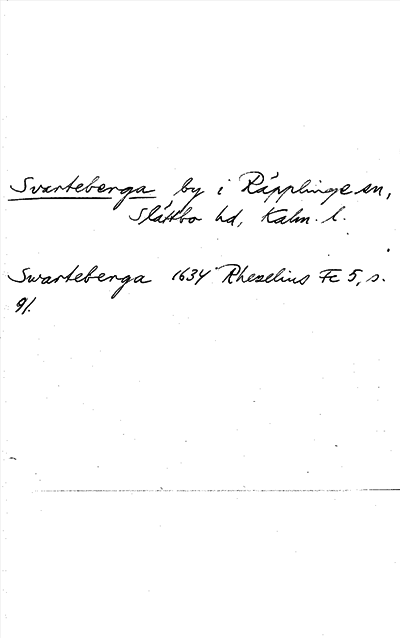 Svarteberga by i Räpplinge sn,
Slättbo hd, Kalm. l.
Swarteberga 1634 Rhezelius Fc 5, s.
91.